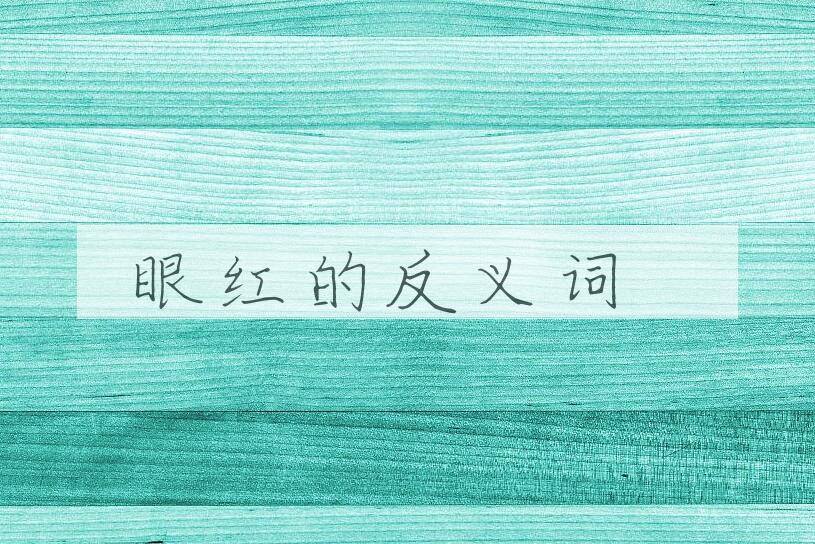 眼红的反义词